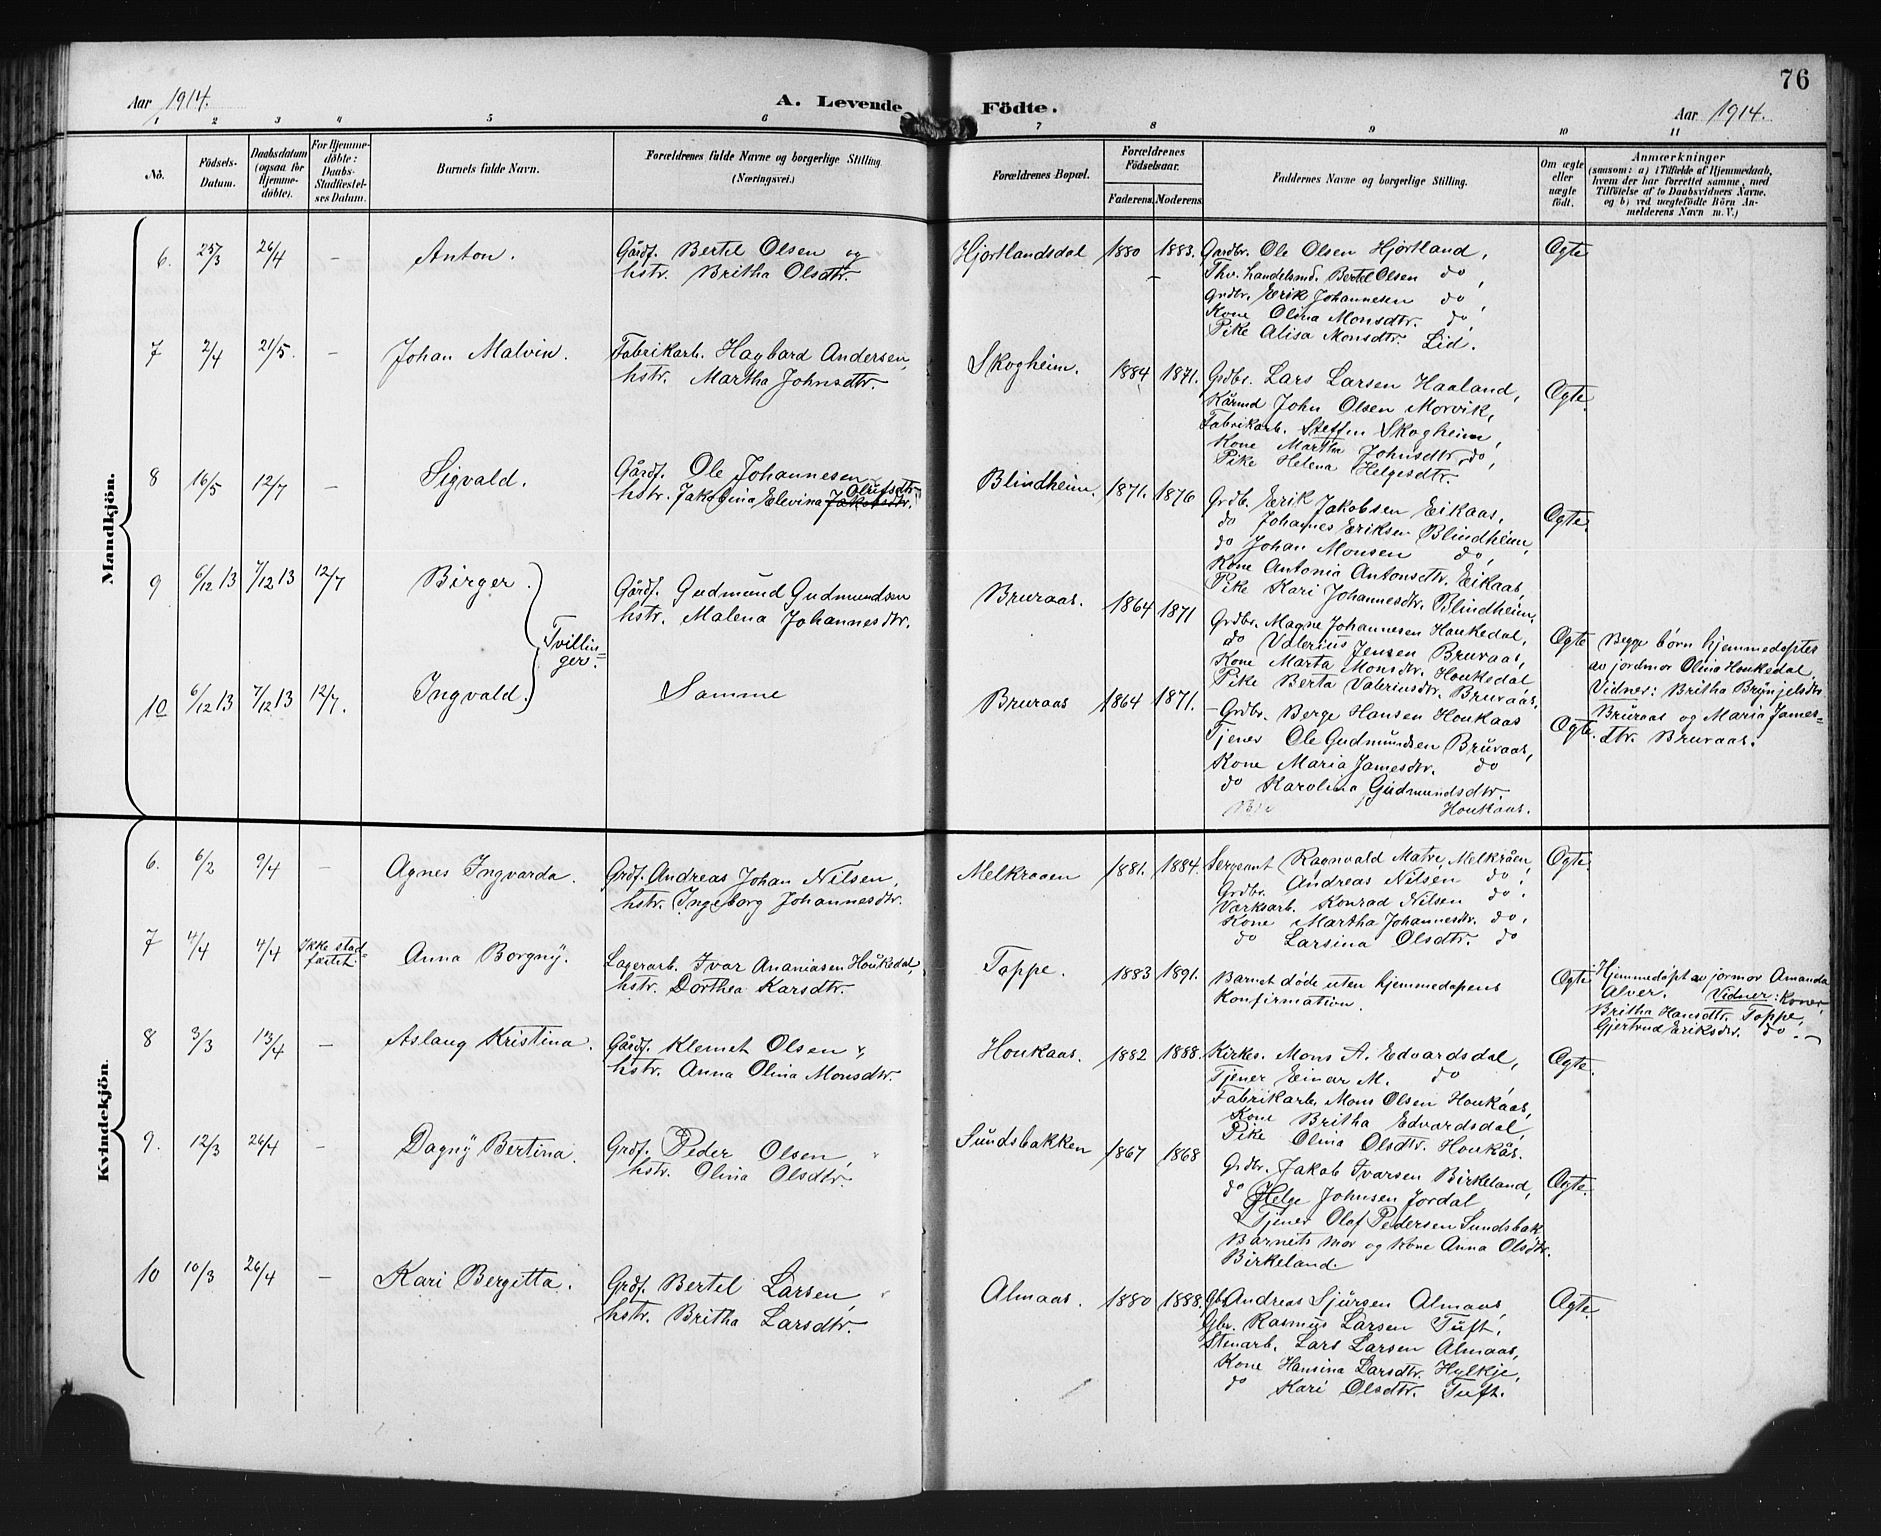 76
Aar 1914. A. Levende Födte. Aar 1914.
1 2 3 4 5 6 7 8 9 10 11
No.
Födsels-
Datum.
Daabsdatum
(ogsaa for
Hjemme-
döbte).
For Hjemme-
döbte:
Daabs-
Stadfæstel-
ses Datum.
Barnets fulde Navn.
Forældrenes fulde Navne og borgerlige Stilling
(Næringsvei.)
Forældrenes Bopæl.
Forældrenes
Födselsaar.
Faderens. Moderens.
Faddernes Navne og borgerlige Stilling.
Om ægte
eller
uægte
födt.
Anmærkninger
(saasom: a) i Tilfælde af Hjemmedaab,
hvem der har forrettet samme, med
Tilföielse af to Daabsvidners Navne.
og b) ved uægtefödte Börn An-
melderens Navn m. V.)
Mandkjön.
6. 25/3 26/4 – Anton.
Gårdf. Bertel Olsen og
hstr. Britha Olsdtr.
Hjortlandsdal 1880 1883.
Gardbr. Ole Olsen Hjortland,
Fhv. Landelsmd. Bertel Olsen do,
Grdbr. Erik Johannesen do,
Kone Olina Monsdtr. do,
Pike Alisa Monsdtr. Lid.
Ogte
7 2/4 21/5. – Johan Malvin.
Fabrikarb. Hagbard Andersen,
hstr. Martha Johnsdtr.
Skogheim. 1884 1871.
Grdbr. Lars Larsen Haaland,
Kårmd John Olsen Morvik,
Fabrikarb. Steffen Skogheim,
Kone Martha Johnsdtr do,
Pike Helena Helgesdtr.
Ogte.
8 16/5 12/7 – Sigvald.
Gårdf. Ole Johannesen
hstr. Jakobina Elevina Jakobsdtr. Olufsdtr.
Blindheim. 1871. 1876
Grdb. Erik Jakobsen Eikaas,
do Johannes Eriksen Blindheim,
do Johan Monsen do,
Kone Antonia Antonsdtr. Eikaas,
Pike Kari Johannesdtr. Blindheim.
Ogte.
9 6/12 13 7/12 13 12/7 Birger.
Tvillin-
ger.
Gårdf. Gudmund Gudmundsen
hstr. Malena Johannesdtr.
Bruraas. 1864 1871
Grdbr. Magne Johannesen Houkedal,
do Valerius Jensen Bruraas,
Kone Marta Monsdtr. Houkedal
Pike Berta Valeriusdtr. Bruraas.
Ogte
Begge børn hjemmedøptes
av jordmor Olina Houkedal.
Vidner: Britha Brynjelsdtr
Bruraas og Maria James-
dtr. Bruraas.
10 6/12 13 7/12 13 12/7. Ingvald.
Samme
Bruraas 1864 1871.
Grdbr. Berge Hansen Houkaas
Tjener Ole Gudmundsen Bruraas,
Kone Maria Jamesdtr. do
do Karolina Gudmundsdtr.
Houkaas.
Ogte.
Kvindekjön.
6. 6/2 9/4 – Agnes Ingvarda.
Grdf. Andreas Johan Nilsen,
hstr. Ingeborg Johannesdtr.
Melkraaen 1881. 1884.
Sergeant Ragnvald Matre Melkråen,
Grdbr. Andreas Nilsen do,
Værksarb. Konrad Nilsen do.
Kone Martha Johannesdtr. do,
do Larsina Olsdtr. do
Ogte.
7 4/4 4/4 Ikke stad
fæstet. Anna Borgny.
Lagerarb. Ivar Ananiasen Houkedal,
hstr. Dorthea Karsdtr.
Toppe. 1883 1891.
Barnet døde uten hjemmedøpens
Konfirmation.
Ogte
Hjemmedøpt av jormor Amanda
Alver. Vidner: Koner,
Britha Hansdtr. Toppe,
Gjertrud Eriksdtr. do.
8 3/3 13/4 – Aslaug Kristina.
Gårdf. Klemet Olsen
hstr. Anna Olina Monsdtr.
Houkaas. 1882 1888.
Kirkes. Mons A. Edvardsdal,
Tjener Einar M. do
Fabrikarb. Mons Olsen Houkaas,
Kone Britha Edvardsdal,
Pike Olina Olsdtr. Houkås.
Ogte.
9. 12/3 26/4 – Dagny Bertina.
Grdf. Peder Olsen,
hstr. Olina Olsdtr.
Sundsbakken 1867 1868
Grdbr. Jakob Ivarsen Birkeland,
do Helge Johnsen Jordal
Tjener Olaf Pedersen Sundsbak,
Barnets mor og kone Anna Olsdtr.
Birkeland.
Ogte.
10 10/3 26/4 – Kari Bergitta.
Grdf. Bertel Larsen,
hstr. Britha Larsdtr.
Almaas. 1880 1888.
Gbr. Andreas Sjursen Almaas,
Gbr. Rasmus Larsen Tuft,
Stenarb. Lars Larsen Almaas,
Kone Hansina Larsdtr. Hylkje,
do Kari Olsdtr. Tuft.
Ogte.